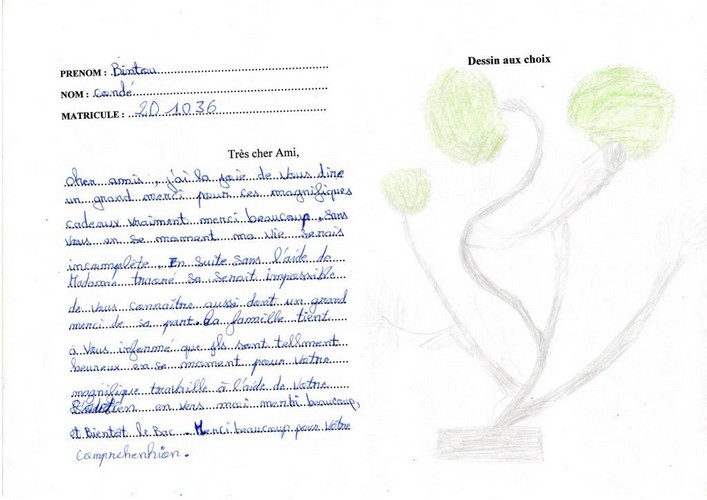 PRENOM : Bintou
NOM : Condé
MATRICULE : 20 1036
Dessin aux choix
Très cher Ami,
cher amis, j'ai la joie de vous dire
un grand merci pour ces magnifiques
cadeaux vraiment merci beaucoup, sans
vous en se moment ma vie serais
incomplète. En suite sans l'aide de
Madame traoré sa serait impossible
de vous connaître aussi dont un grand
merci de sa part. La famille tient
à vous informé que ils sont tellment
heureux en se moment pour votre
magnifique travaille à l'aide de votre
en vers moi merci beaucoup,
et Bientôt le Bac. Merci beaucoup pour votre
comprehenhion.